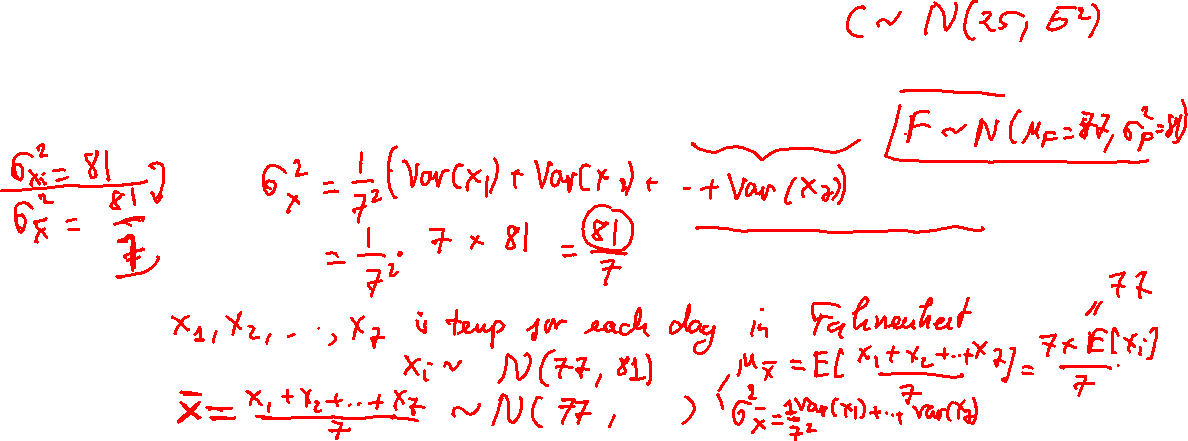 C ~ N(25, 5²)
F ~ N(μ_F = 77, σ_F² = 81)
σ_xi² = 81
σ_x̄² = 81/7
σ_x² = 1/7² (Var(x₁) + Var(x₂) + ··· + Var(x₇))
= 1/7² · 7 × 81 = 81/7
x₁, x₂, ..., x₇ is temp for each day in Fahrenheit
xᵢ ~ N(77, 81)
x̄ = (x₁ + x₂ + ... + x₇)/7 ~ N(77, )
μ_x̄ = E[(x₁ + x₂ + ... + x₇)/7] = (7 × E[xᵢ])/7
" 77
σ_x̄² = 1/7² Var(x₁) + ... + Var(x₇)